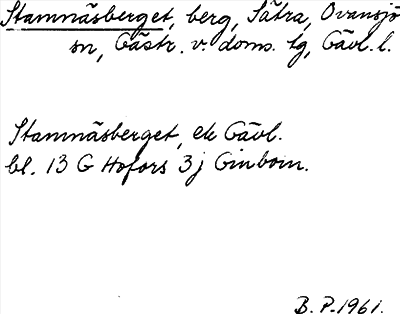 Stamnäsberget, berg, Sätra, Ovansjö
sn, Gästr. v. doms. tg, Gävl. l.
Stamnäsberget, ek Gävl.
bl. 13 G Hofors 3 j Ginborn.
B. P. 1961.